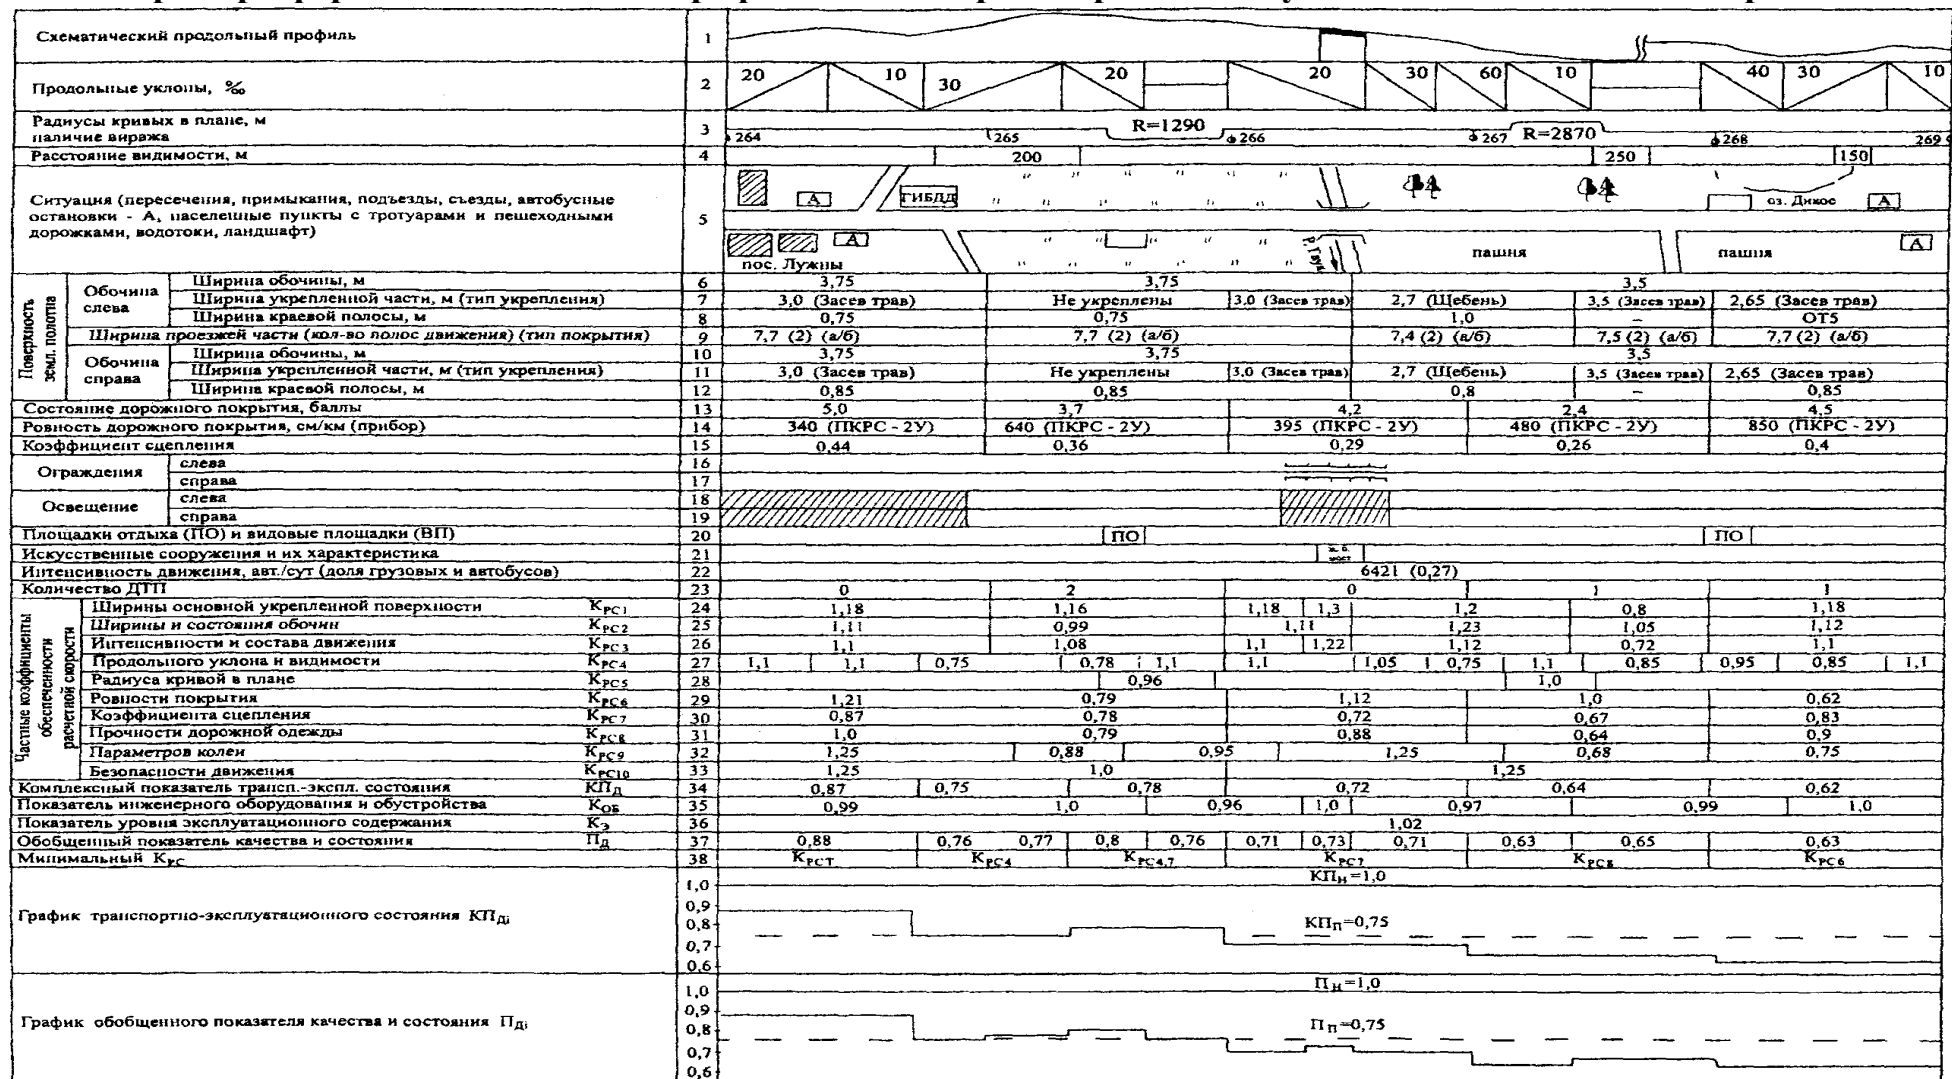 Схематический продольный профиль 1
Продольные уклоны, ‰ 2 20 10 30 20 20 30 60 10 40 30 10
Радиусы кривых в плане, м
наличие виража 3 264 265 R=1290 266 267 R=2870 268 269
Расстояние видимости, м 4 200 250 150
Ситуация (пересечения, примыкания, подъезды, съезды, автобусные
остановки - А, населенные пункты с тротуарами и пешеходными
дорожками, водотоки, ландшафт) 5
А ГИБДД оз. Дикое А
А пашня пашня А
пос. Лужны
Поверхность земл. полотна
Обочина слева
Ширина обочины, м 6 3,75 3,75 3,5
Ширина укрепленной части, м (тип укрепления) 7 3,0 (Засев трав) Не укреплены 3,0 (Засев трав) 2,7 (Щебень) 3,5 (Засев трав) 2,65 (Засев трав)
Ширина краевой полосы, м 8 0,75 0,75 1,0 – ОТ5
Ширина проезжей части (кол-во полос движения) (тип покрытия) 9 7,7 (2) (а/б) 7,7 (2) (а/б) 7,4 (2) (а/б) 7,5 (2) (а/б) 7,7 (2) (а/б)
Обочина справа
Ширина обочины, м 10 3,75 3,75 3,5
Ширина укрепленной части, м (тип укрепления) 11 3,0 (Засев трав) Не укреплены 3,0 (Засев трав) 2,7 (Щебень) 3,5 (Засев трав) 2,65 (Засев трав)
Ширина краевой полосы, м 12 0,85 0,85 0,8 – 0,85
Состояние дорожного покрытия, баллы 13 5,0 3,7 4,2 2,4 4,5
Ровность дорожного покрытия, см/км (прибор) 14 340 (ПКРС - 2У) 640 (ПКРС - 2У) 395 (ПКРС - 2У) 480 (ПКРС - 2У) 850 (ПКРС - 2У)
Коэффициент сцепления 15 0,44 0,36 0,29 0,26 0,4
Ограждения слева 16
справа 17
Освещение слева 18
справа 19
Площадки отдыха (ПО) и видовые площадки (ВП) 20 ПО ПО
Искусственные сооружения и их характеристика 21 ж. б. мост
Интенсивность движения, авт./сут (доля грузовых и автобусов) 22 6421 (0,27)
Количество ДТП 23 0 2 0 1 1
Частные коэффициенты обеспеченности расчетной скорости
Ширины основной укрепленной поверхности КРС1 24 1,18 1,16 1,18 1,3 1,2 0,8 1,18
Ширины и состояния обочин КРС2 25 1,11 0,99 1,11 1,23 1,05 1,12
Интенсивности и состава движения КРС3 26 1,1 1,08 1,1 1,22 1,12 0,72 1,1
Продольного уклона и видимости КРС4 27 1,1 1,1 0,75 0,78 1,1 1,1 1,05 0,75 1,1 0,85 0,95 0,85 1,1
Радиуса кривой в плане КРС5 28 0,96 1,0
Ровности покрытия КРС6 29 1,21 0,79 1,12 1,0 0,62
Коэффициента сцепления КРС7 30 0,87 0,78 0,72 0,67 0,83
Прочности дорожной одежды КРС8 31 1,0 0,79 0,88 0,64 0,9
Параметров колеи КРС9 32 1,25 0,88 0,95 1,25 0,68 0,75
Безопасности движения КРС10 33 1,25 1,0 1,25
Комплексный показатель трансп.-экспл. состояния КПД 34 0,87 0,75 0,78 0,72 0,64 0,62
Показатель инженерного оборудования и обустройства КОБ 35 0,99 1,0 0,96 1,0 0,97 0,99 1,0
Показатель уровня эксплуатационного содержания КЭ 36 1,02
Обобщенный показатель качества и состояния ПД 37 0,88 0,76 0,77 0,8 0,76 0,71 0,73 0,71 0,63 0,65 0,63
Минимальный КРС 38 КРС7 КРС4 КРС4,7 КРС7 КРС8 КРС6
График транспортно-эксплуатационного состояния КПДi
1,0 КПН=1,0
0,9
0,8 КПП=0,75
0,7
0,6
График обобщенного показателя качества и состояния ПДi
1,0 ПН=1,0
0,9
0,8 ПП=0,75
0,7
0,6